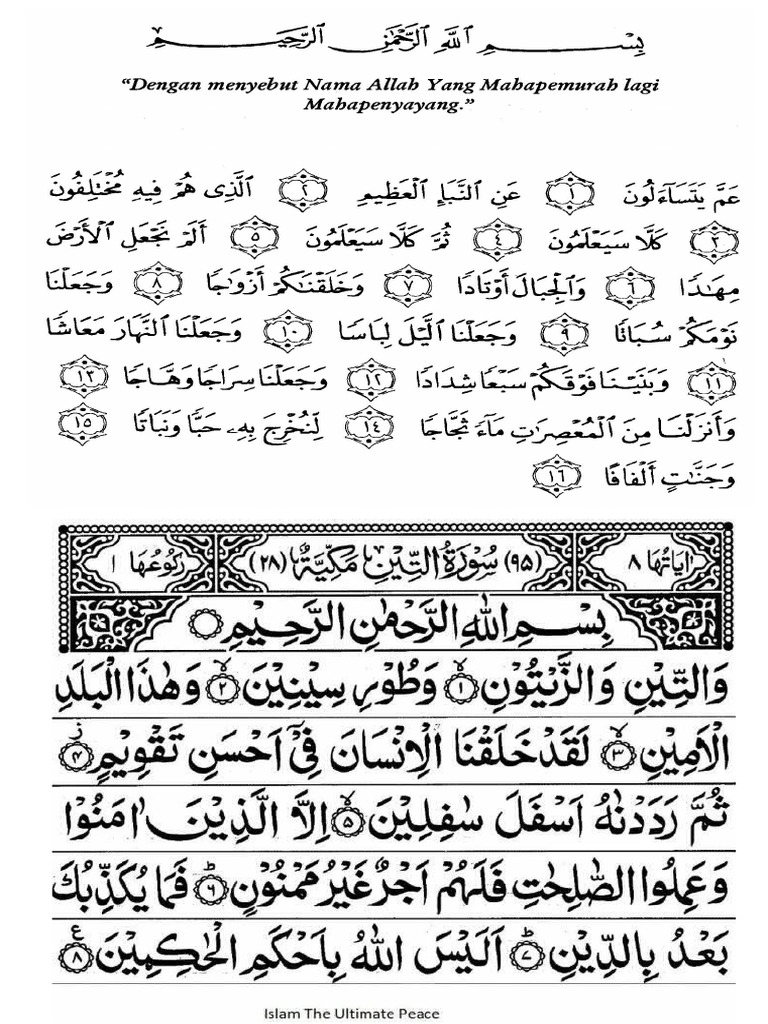 بِسْمِ ٱللَّهِ ٱلرَّحْمَٰنِ ٱلرَّحِيمِ
“Dengan menyebut Nama Allah Yang Mahapemurah lagi
Mahapenyayang.”
عَمَّ يَتَسَآءَلُونَ ﴿١﴾ عَنِ ٱلنَّبَإِ ٱلْعَظِيمِ ﴿٢﴾ ٱلَّذِى هُمْ فِيهِ مُخْتَلِفُونَ
﴿٣﴾ كَلَّا سَيَعْلَمُونَ ﴿٤﴾ ثُمَّ كَلَّا سَيَعْلَمُونَ ﴿٥﴾ أَلَمْ نَجْعَلِ ٱلْأَرْضَ
مِهَٰدًا ﴿٦﴾ وَٱلْجِبَالَ أَوْتَادًا ﴿٧﴾ وَخَلَقْنَٰكُمْ أَزْوَٰجًا ﴿٨﴾ وَجَعَلْنَا
نَوْمَكُمْ سُبَاتًا ﴿٩﴾ وَجَعَلْنَا ٱلَّيْلَ لِبَاسًا ﴿١٠﴾ وَجَعَلْنَا ٱلنَّهَارَ مَعَاشًا
﴿١١﴾ وَبَنَيْنَا فَوْقَكُمْ سَبْعًا شِدَادًا ﴿١٢﴾ وَجَعَلْنَا سِرَاجًا وَهَّاجًا ﴿١٣﴾
وَأَنزَلْنَا مِنَ ٱلْمُعْصِرَٰتِ مَآءً ثَجَّاجًا ﴿١٤﴾ لِّنُخْرِجَ بِهِۦ حَبًّا وَنَبَاتًا ﴿١٥﴾
وَجَنَّٰتٍ أَلْفَافًا ﴿١٦﴾
اٰيَاتُهَا ٨ (٩٥) سُوْرَةُ التِّيْنِ مَكِّيَّةٌ (٢٨) رُكُوْعُهَا ١
بِسْمِ اللهِ الرَّحْمٰنِ الرَّحِيْمِ
وَالتِّيْنِ وَالزَّيْتُوْنِ ﴿١﴾ وَطُوْرِ سِيْنِيْنَ ﴿٢﴾ وَهٰذَا الْبَلَدِ
الْاَمِيْنِ ﴿٣﴾ لَقَدْ خَلَقْنَا الْاِنْسَانَ فِيْٓ اَحْسَنِ تَقْوِيْمٍ ﴿٤﴾
ثُمَّ رَدَدْنٰهُ اَسْفَلَ سٰفِلِيْنَ ﴿٥﴾ اِلَّا الَّذِيْنَ اٰمَنُوْا
وَعَمِلُوا الصّٰلِحٰتِ فَلَهُمْ اَجْرٌ غَيْرُ مَمْنُوْنٍ ﴿٦﴾ فَمَا يُكَذِّبُكَ
بَعْدُ بِالدِّيْنِ ﴿٧﴾ اَلَيْسَ اللهُ بِاَحْكَمِ الْحٰكِمِيْنَ ﴿٨﴾
Islam The Ultimate Peace